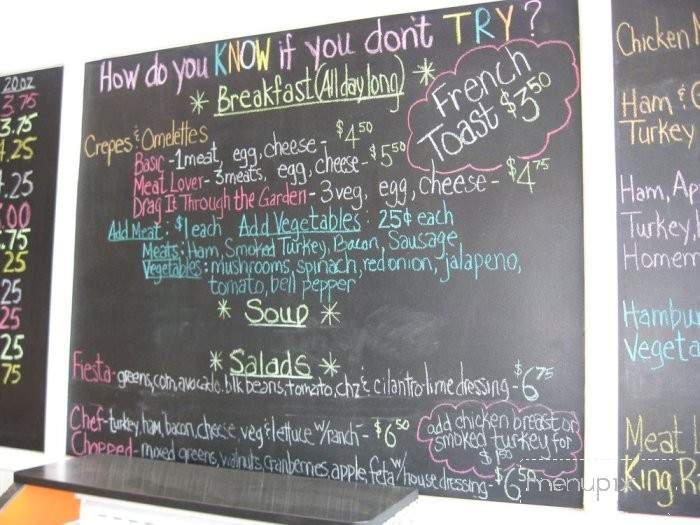 How do you KNOW if you don't TRY?
* Breakfast (All day long) *
French
Toast $3.50
Crepes & Omelettes
Basic - 1 meat, egg, cheese - $4.50
Meat Lover - 3 meats, egg, cheese - $5.50
Drag It Through the Garden - 3 veg, egg, cheese - $4.75
Add Meat: $1 each Add Vegetables: 25¢ each
Meats: Ham, Smoked Turkey, Bacon, Sausage
Vegetables: mushrooms, spinach, red onion, jalapeno,
tomato, bell pepper
* Soup *
* Salads *
Fiesta - greens, corn, avocado, blk beans, tomato, chz & cilantro-lime dressing - $6.75
Chef - turkey, ham, bacon, cheese, veg & lettuce w/ranch - $6.50
add chicken breast or
smoked turkey for
$1.50
Chopped - mixed greens, walnuts, cranberries, apple, feta w/house dressing - $6.50
20oz
3.75
3.75
.25
.25
.00
.75
25
25
25
25
75
Chicken
Ham &
Turkey
Ham, Ap
Turkey,
Homem
Hambur
Vegeta
Meat
King Ra
menupix